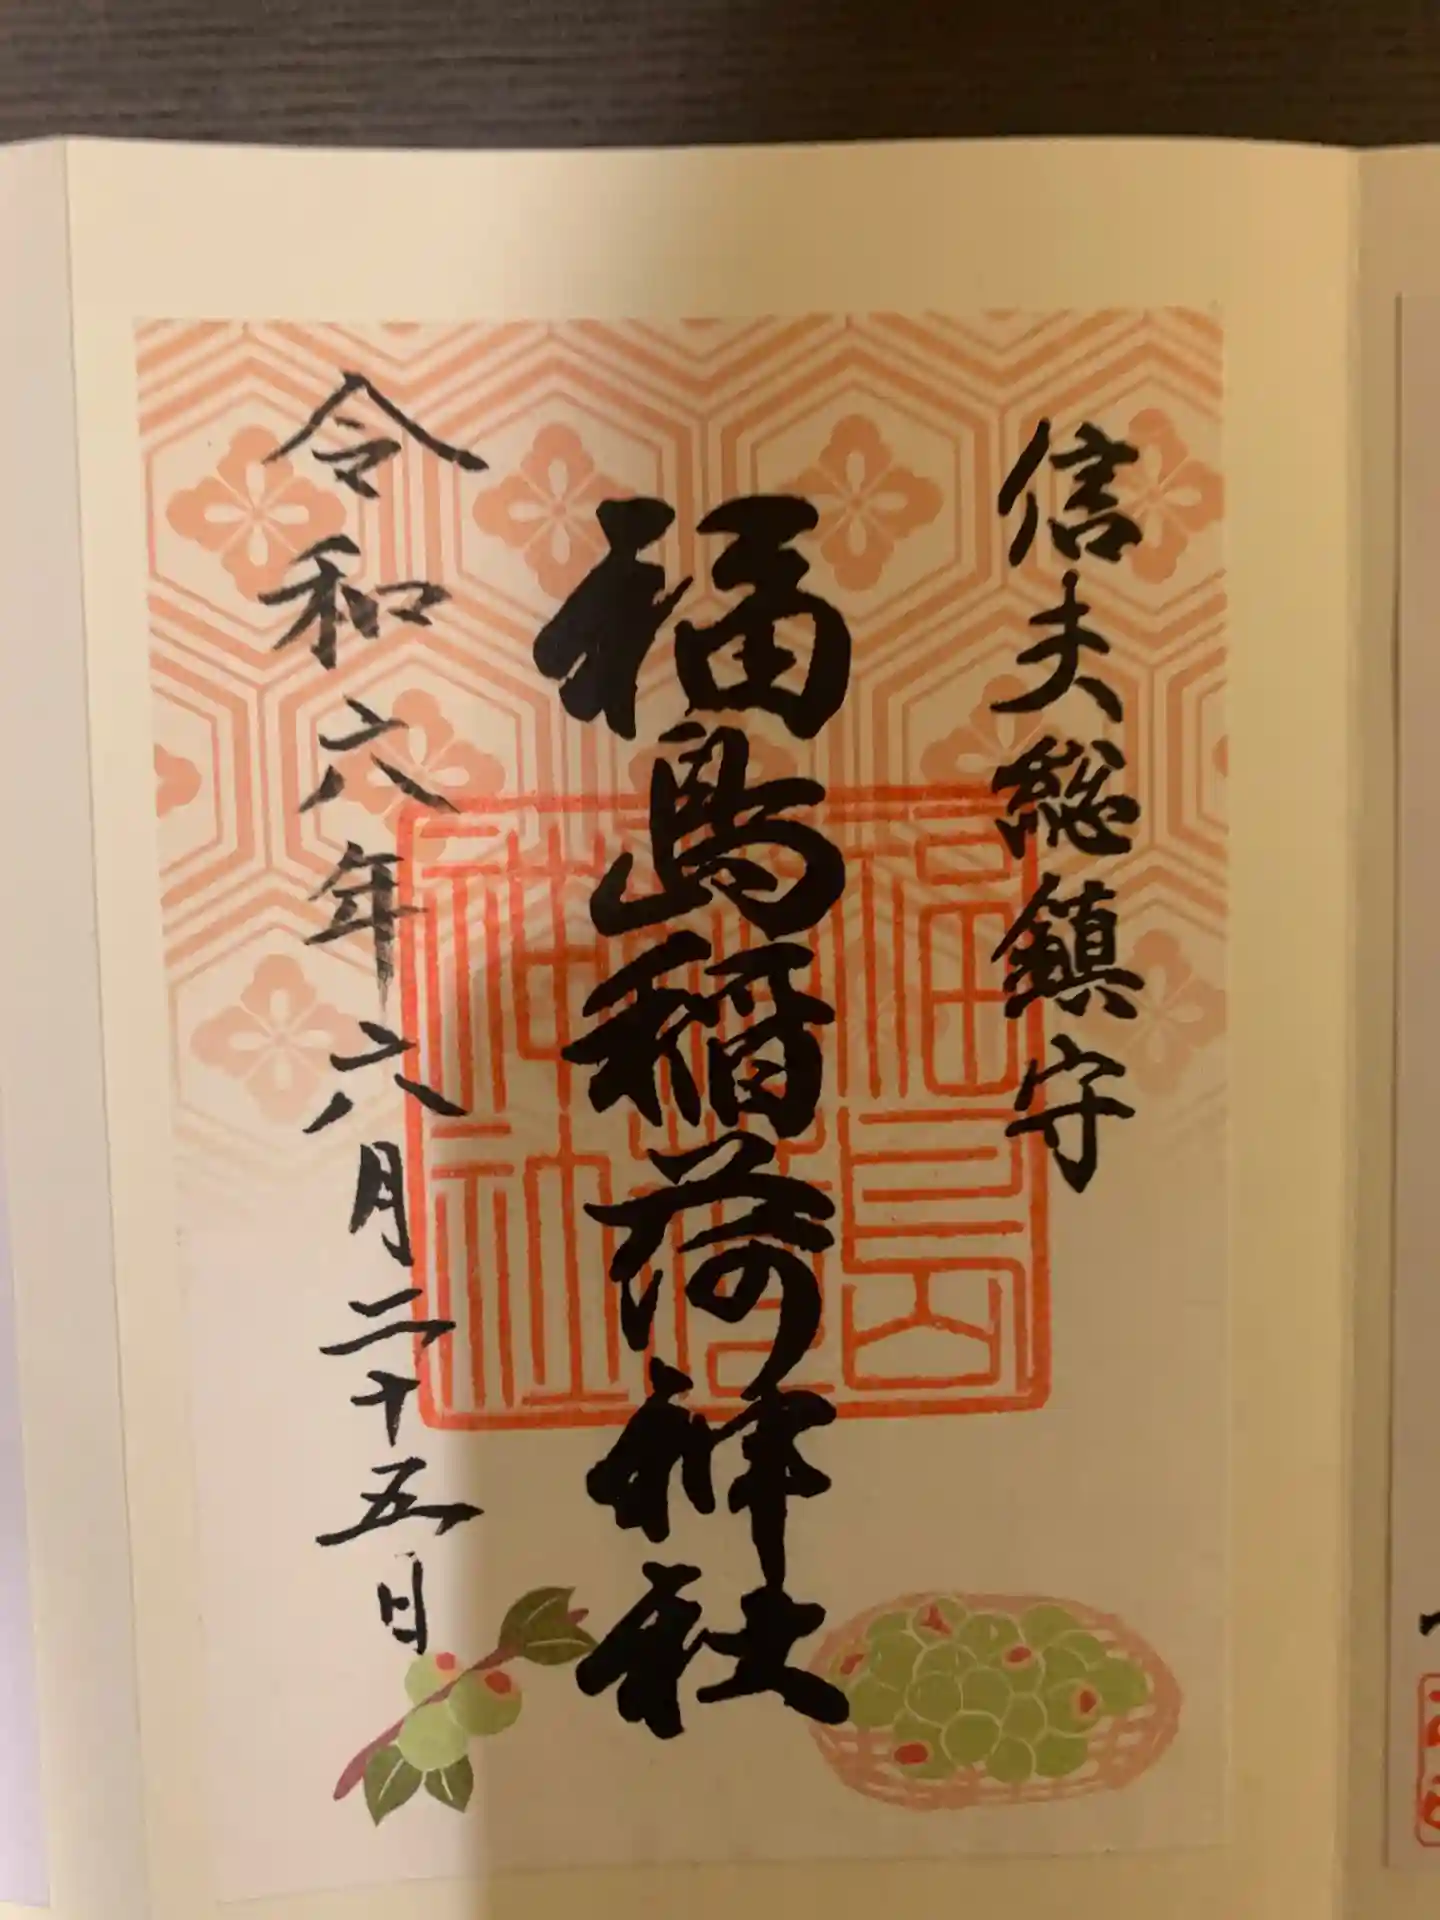 信夫総鎮守
福島稲荷神社
令和六年六月二十五日
福島
稲荷
神社